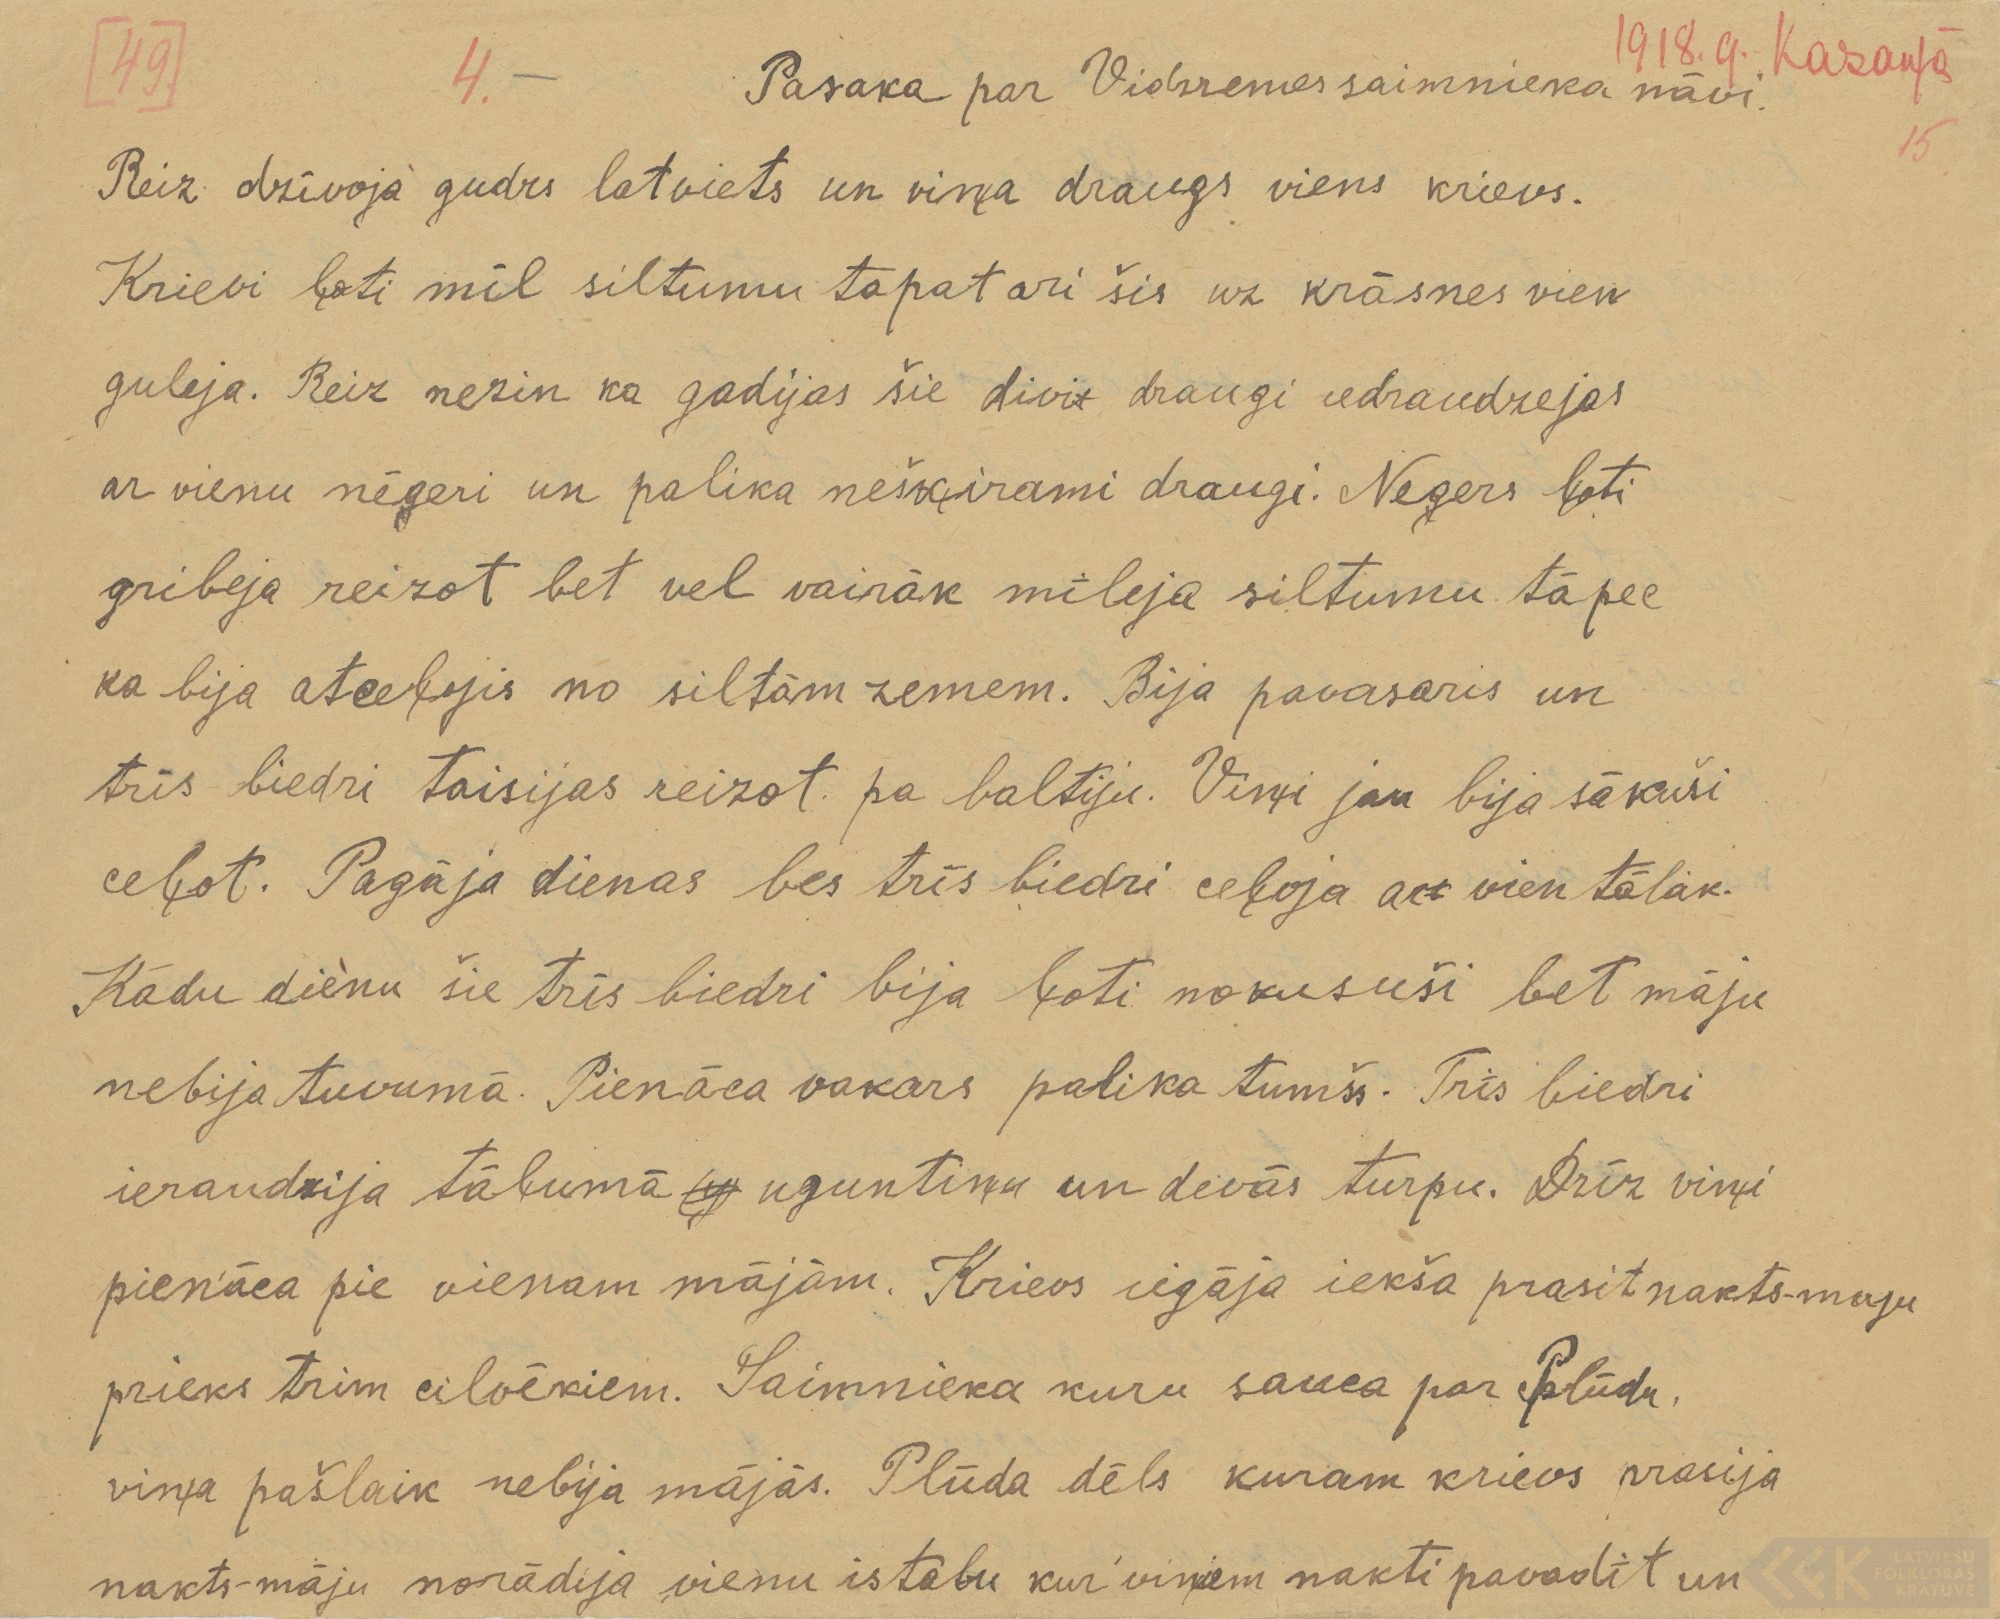 [49] 4. — 1918. g. Kazaņā
Pasaka par Vidzemes saimnieka nāvi.
15
Reiz dzīvoja gudrs latviets un viņa draugs viens krievs.
Krievi ļoti mīl siltumu tāpat ari šis uz krāsnes vien
guleja. Reiz nezin ka gadijas šie divi draugi edraudzejas
ar vienu nēģeri un palika nešķirami draugi. Neģers ļoti
gribeja reizot bet vel vairāk mīleja siltumu tāpec
ka bija atceļojis no siltām zemem. Bija pavasaris un
trīs biedri taisijas reizot pa baltiju. Viņi jau bija sākuši
ceļot. Pagāja dienas bes trīs biedri ceļoja ar vien tālāk.
Kādu dienu šie trīs biedri bija ļoti nokusuši bet māju
nebija tuvumā. Pienāca vakars palika tumšs. Trīs biedri
ieraudzija tāļumā uguntiņu un devās turpu. Drīz viņi
pienāca pie vienam mājām. Krievs iegāja iekša prasit nakts-maju
prieks trim cilvēkiem. Saimnieka kuru sauca par Plūdu,
viņa pašlaik nebija mājās. Plūda dēls kuram krievs prasija
nakts-māju norādija vienu istabu kur viņiem nakti pavadīt un
LATVIEŠU
FOLKLORAS
KRĀTUVE